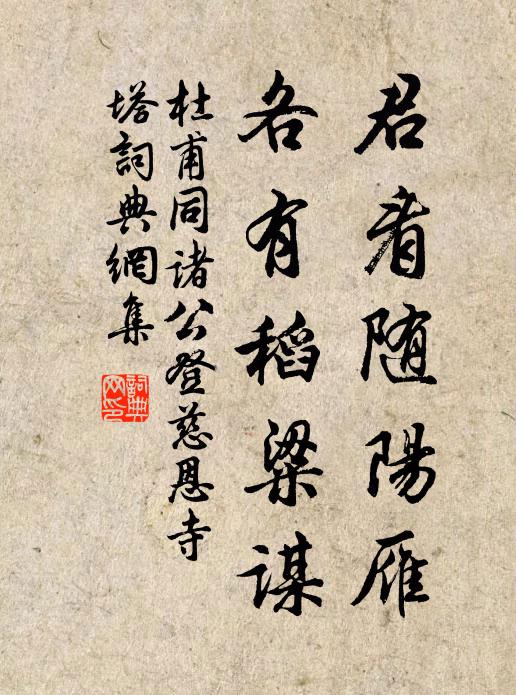 君看随陽雁
各有稻粱謀
杜甫同諸公登慈恩寺
塔詞典網集
詞典网印